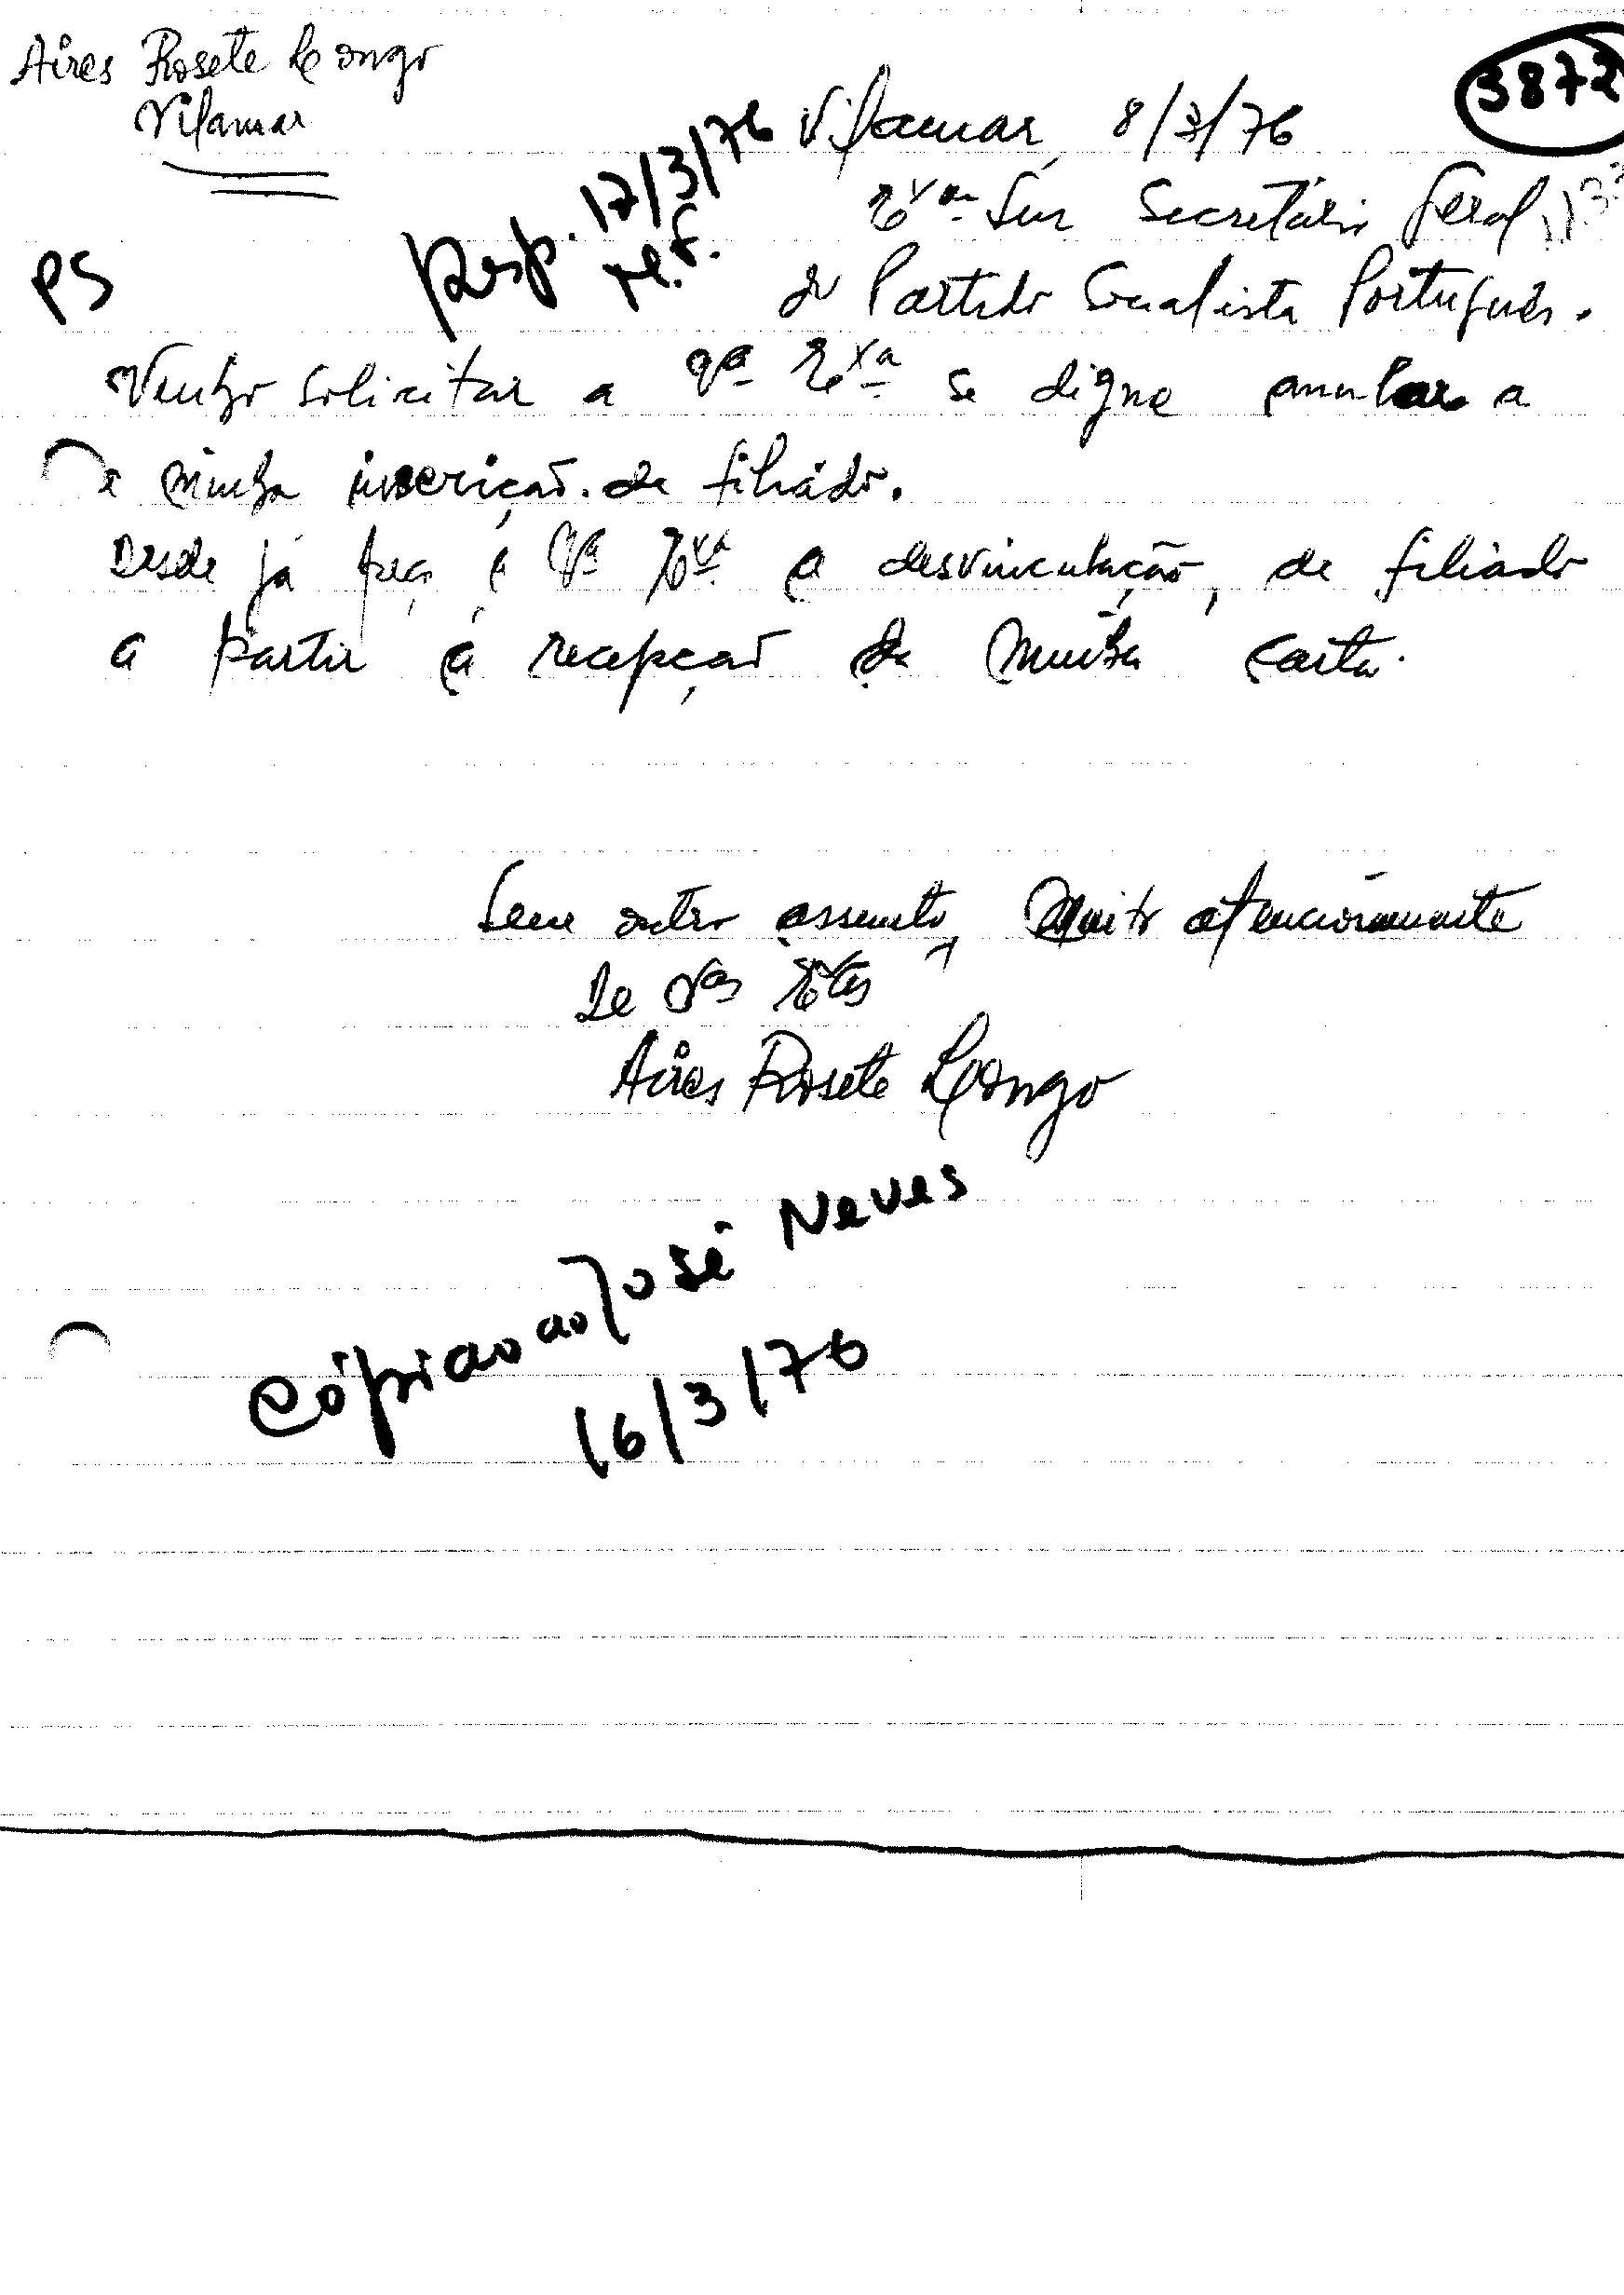 Aires Rosete Longo
Vilamar
3872
Vilamar, 8/3/76
Resp. 17/3/76
PS
Exmo Snr Secretário Geral
do Partido Socialista Português.
Venho solicitar a Vª Exª se digne anular a
minha inscrição de filiádo.
Desde já peço a Vª Exª a desvinculação, de filiádo
a partir á recepção da minha carta.
Sem outro assunto, Muito atenciosamente
De Vªs Exªs
Aires Rosete Longo
Cópia ao José Neves
16/3/76